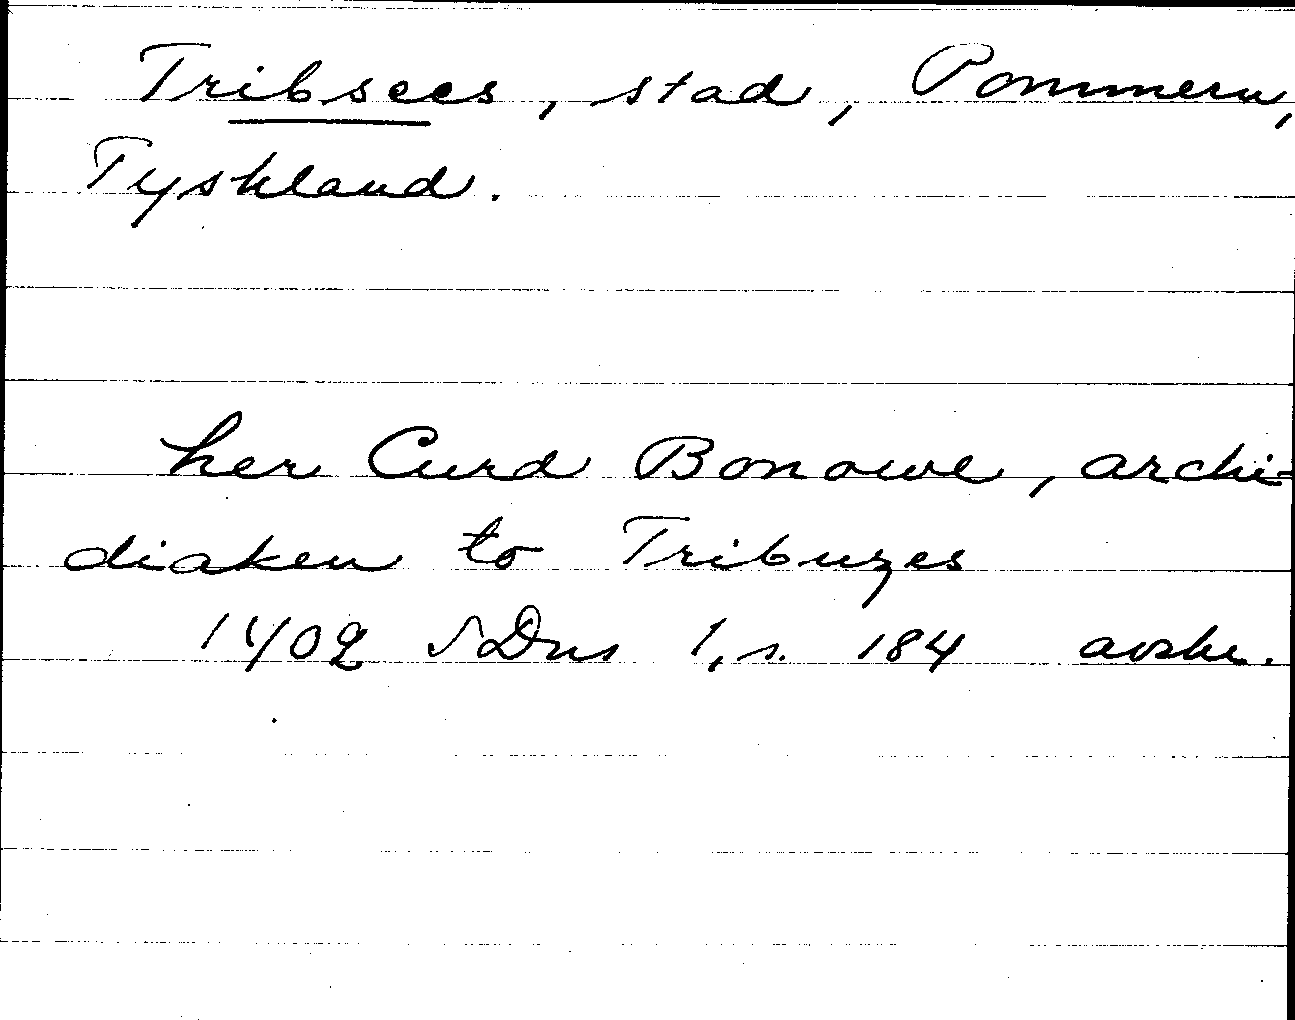 Tribsees, stad, Pommern,
Tyskland.
her Curd Bonowe, archi-
diaken to Tribuzes
1402 SDns 1, s. 184 avskr.